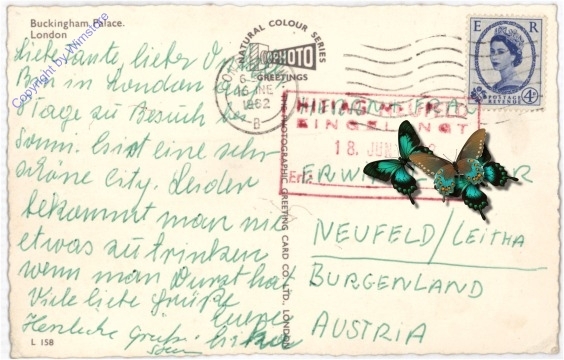 Buckingham Palace.
London
Copyright by Winstone
NATURAL COLOUR SERIES
PHOTO
GREETINGS
THE PHOTOGRAPHIC GREETING CARD CO., LTD., LONDON
E R
POSTAGE
REVENUE
4D
1962
B
EINGELANGT
18. JUN
Liebe Tante, lieber
Bin in London
Tage zu Besuch
Sonn. Es ist eine sehr
schöne City. Leider
bekommt man nie
etwas zu trinken
wenn man Durst hat
Viele liebe Grüße
Eure
Herzliche Grüße
NEUFELD/LEITHA
BURGENLAND
AUSTRIA
L 158